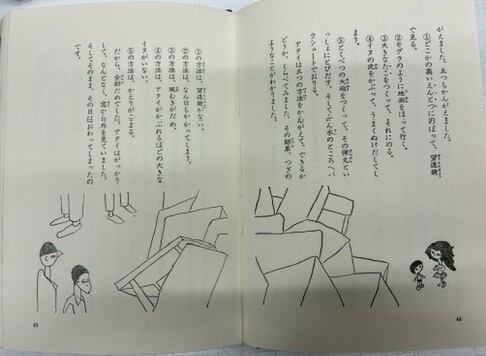 がえました。五つもかんがえました。
①どこかの高いえんとつにのぼって、望遠鏡
で見る。
②モグラのように地面をほって行く。
③大きなたこをつくって、それにのる。
④イヌの皮をかぶって、うまくぬけだしてし
まう。
⑤とくべつの大砲をつくって、その弾丸とい
っしょにとびだす。そしてふん水のところへパ
ラシュートでおりる。
アタイは五つの方法をかんがえて、できるか
どうか、しらべてみました。その結果、つぎの
ようなことがわかりました。
44
①の方法は、望遠鏡がない。
②の方法は、なん日もかかってしまう。
③の方法は、風むきがだめ。
④の方法は、アタイがかぶれるほどの大きな
イヌがいない。
⑤の方法は、かえりがこまる。
だから、全部だめでした。アタイはがっかり
して、なんとなく、窓から外を見ていました。
そしてそのまま、その日はおわってしまったの
です。
45